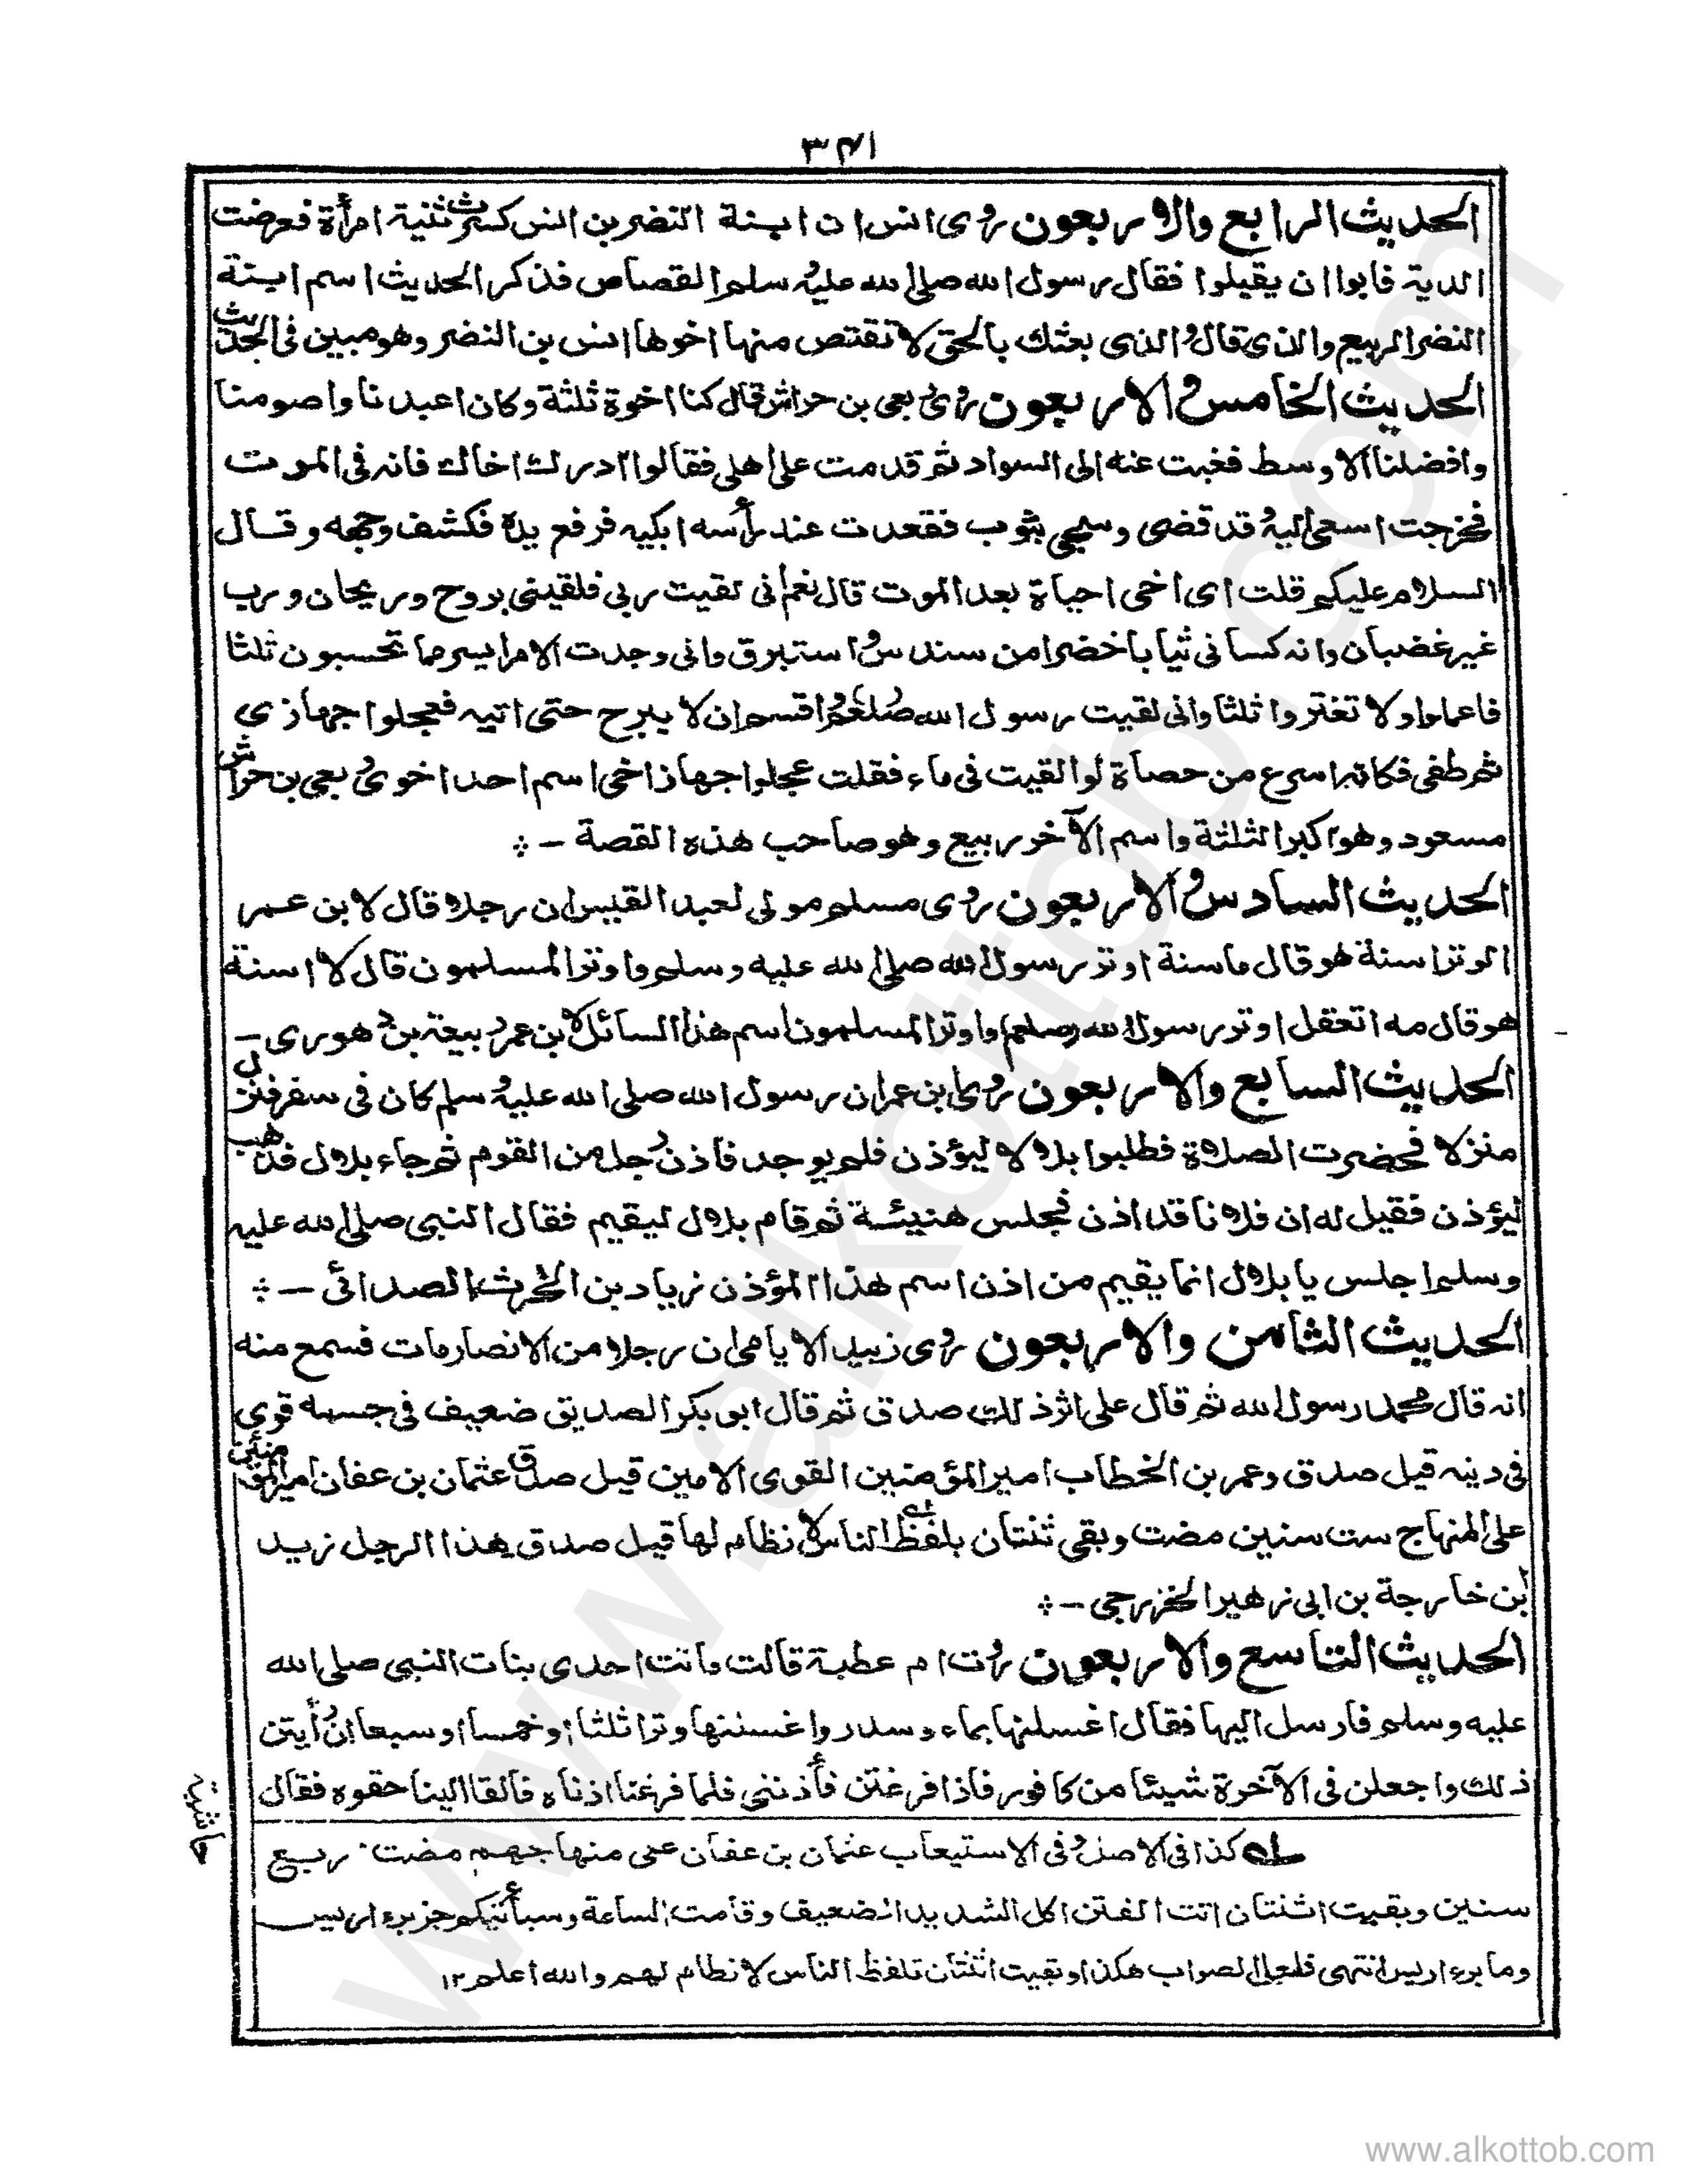 ٣٤١
الحديث الرابع والاربعون روى انس ان ابنة النضر بن انس كسرت ثنية امرأة فعرضت
الدية فابوا ان يقبلوا فقال رسول الله صلى الله عليه وسلم القصاص فذكر الحديث اسم ابنة
النضر الربيع والذى قال والذى بعثك بالحق لا تقتص منها اخوها انس بن النضر وهو مبين فى الحديث
الحديث الخامس والاربعون روى ربعى بن حراش قال كنا اخوة ثلثة وكان اعبدنا واصومنا
وافضلنا الاوسط فغبت عنه الى السواد ثم قدمت على اهلى فقالوا ادرك اخاك فانه فى الموت
فخرجت اسعى اليه وقد قضى وسجى بثوب فقعدت عند رأسه ابكيه فرفع يده فكشف وجهه وقال
السلام عليكم قلت اى اخى احياة بعد الموت قال نعم انى لقيت ربى فلقينى بروح وريحان ورب
غير غضبان وانه كسانى ثيابا خضرا من سندس واستبرق وانى وجدت الامر ايسر مما تحسبون ثلثا
فاعملوا ولا تغتروا ثلثا وانى لقيت رسول الله صلعم واقسم ان لا يبرح حتى اتيه فعجلوا جهازى
ثم طفى فكانما اسرع من حصاة لو القيت فى ماء فقلت عجلوا جهاز اخى اسم احد اخوى ربعى بن حراش
مسعود وهو اكبر الثلثة واسم الآخر ربيع وهو صاحب هذه القصة -
الحديث السادس والاربعون روى مسلم مولى لعبد القيس ان رجلا قال لابن عمر
الوتر اسنة هو قال ما سنة اوتر رسول الله صلى الله عليه وسلم واوتر المسلمون قال لا اسنة
هو قال مه اتعقل اوتر رسول الله (صلعم) واوتر المسلمون اسم هذا السائل لابن عمر ربيعة بن دهورى -
الحديث السابع والاربعون روى ابن عمر ان رسول الله صلى الله عليه وسلم كان فى سفر فنزل
منزلا فحضرت الصلاة فطلبوا بلالا ليؤذن فلم يوجد فاذن رجل من القوم ثم جاء بلال فذهب
ليؤذن فقيل له ان فلانا قد اذن فجلس هنيئة ثم قام بلال ليقيم فقال النبى صلى الله عليه
وسلم اجلس يا بلال انما يقيم من اذن اسم هذا المؤذن زياد بن الحرث الصدائى -
الحديث الثامن والاربعون روى زبيد الايامى ان رجلا من الانصار مات فسمع منه
انه قال محمد رسول الله ثم قال على اثر ذلك صدق ثم قال ابو بكر الصديق ضعيف فى جسمه قوى
فى دينه قيل صدق وعمر بن الخطاب امير المؤمنين القوى الامين قيل صدق عثمان بن عفان امير المؤمنين
على المنهاج ست سنين مضت وبقى ثنتان بلفظ اى الناس لا نظام لها قيل صدق هذا الرجل زيد
بن خارجة بن ابى زهير الخزرجى -
الحديث التاسع والاربعون روت ام عطية قالت ماتت احدى بنات النبى صلى الله
عليه وسلم فارسل اليها فقال اغسلنها بماء وسدر واغسلنها وترا ثلثا او خمسا او سبعا ان رأيتن
ذلك واجعلن فى الآخرة شيئا من كافور فاذا فرغتن فأذننى فلما فرغنا اذناه فالقا الينا حقوه فقال
حاشية
له كذا فى الاصل وفى الاستيعاب عثمان بن عفان على منهاجهم مضت ربيع
سنين وبقيت اثنتان اتت الفتن اكل الشديد الضعيف وقامت الساعة وسيأتيكم خبر بئر اريس
وما بئر اريس انتهى فلعل الصواب هكذا وبقيت اثنتان تلفظ الناس لا نظام لهم والله اعلم ١٢
www.alkottob.com